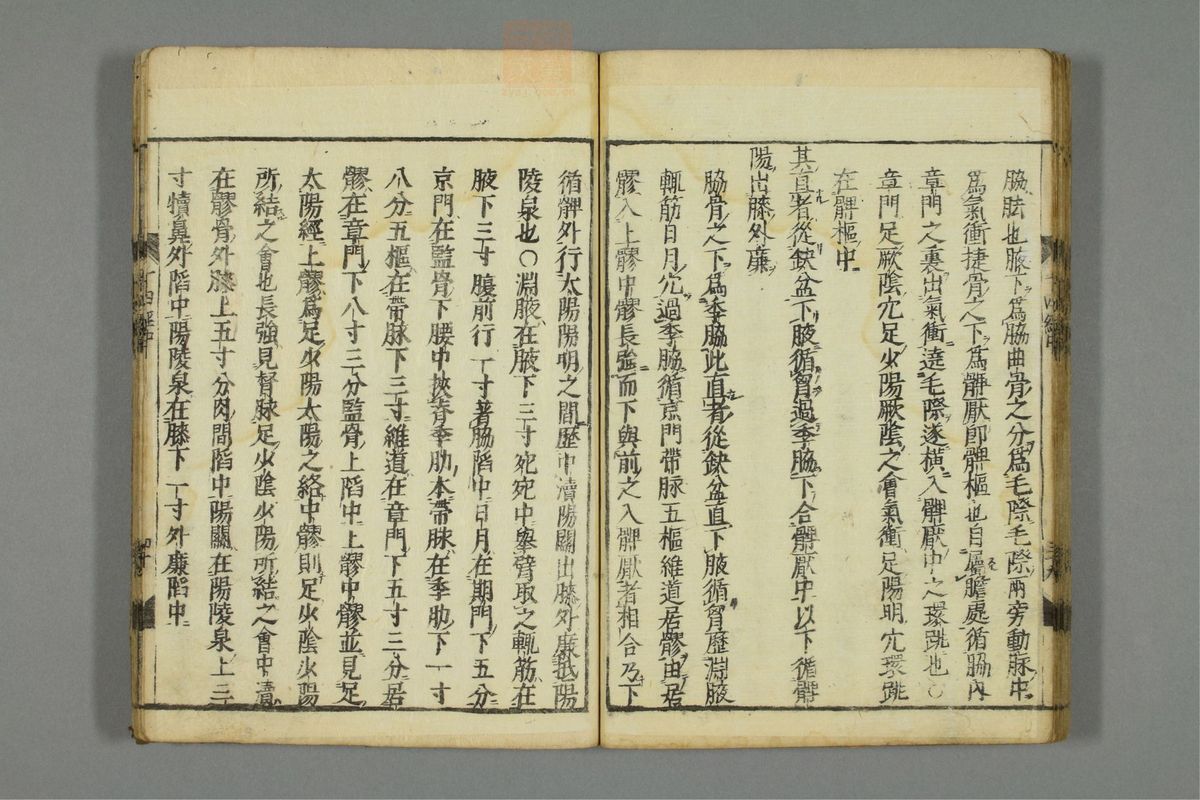 脇胠也脇下爲脇曲骨之分爲毛際毛際兩旁動脉中
爲氣衝捷骨之下爲髀厭卽髀樞也自屬膽處循脇內
章門之裏出氣衝遶毛際遂橫入髀厭中之環跳也○
章門足厥陰穴足少陽厥陰之會氣衝足陽明穴環跳
在髀樞中
其直者從缺盆下腋循胷過季脇下合髀厭中以下循髀
陽出膝外廉
脇骨之下爲季脇此直者從缺盆直下腋循胷歷淵腋
輒筋日月穴過季脇循京門帶脉五樞維道居髎由居
髎入上髎中髎長強而下與前之入髀厭者相合乃下
循髀外行太陽陽明之間歷中瀆陽關出膝外廉抵陽
陵泉也○淵腋在腋下三寸宛宛中舉臂取之輒筋在
腋下三寸腹前行一寸著脇陷中日月在期門下五分
京門在監骨下腰中挾脊季肋本帶脉在季肋下一寸
八分五樞在帶脉下三寸維道在章門下五寸三分居
髎在章門下八寸三分監骨上陷中上髎中髎並見足
太陽經上髎爲足少陽太陽之絡中髎則足少陰少陽
所結之會也長強見督脉足少陰少陽所結之會中瀆
在髀骨外膝上五寸分肉間陷中陽關在陽陵泉上三
寸犢鼻外陷中陽陵泉在膝下一寸外廉陷中